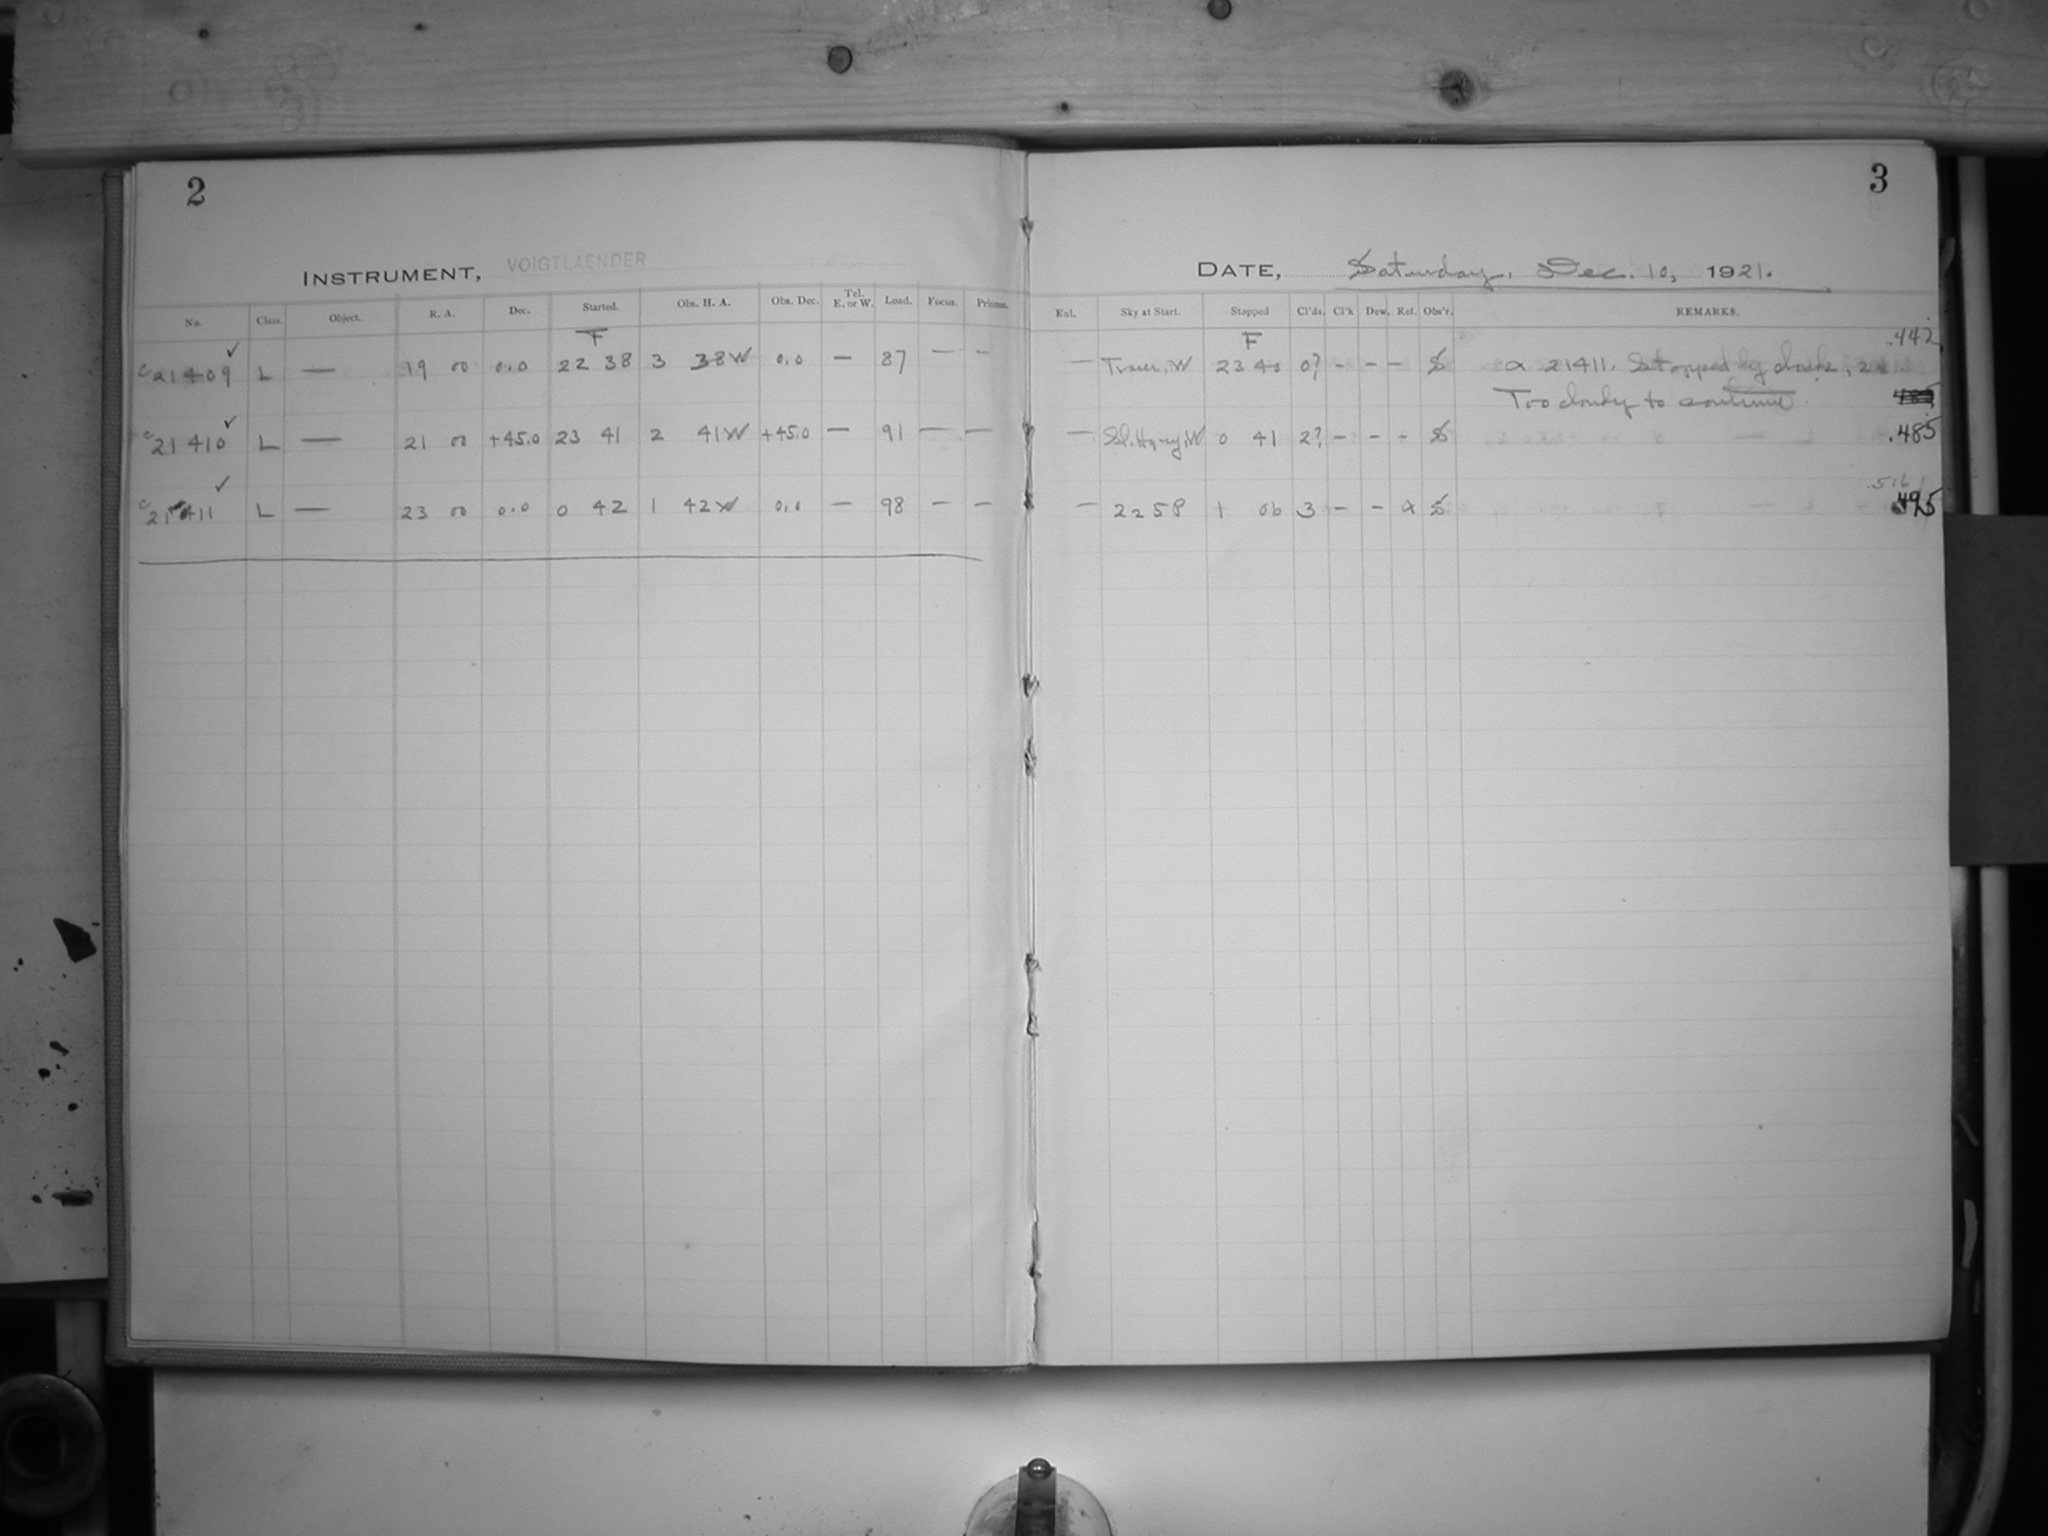 2
3
INSTRUMENT, VOIGTLAENDER
DATE, Saturday, Dec. 10, 1921.
No. Class. Object. R. A. Dec. Started. Obs. H. A. Obs. Dec. Tel. E. or W. Load. Focus. Prisms. Exl. Sky at Start. Stopped Cl'ds. Cl'k Dew. Ref. Obs'r. REMARKS.
F F .442
c 21409 ✓ L — 19 00 0.0 22 38 3 38 W 0.0 — 87 — — — W 23 40 0? – – – S α 21411. Stopped by clouds,
Too cloudy to continue.
c 21410 ✓ L — 21 00 +45.0 23 41 2 41 W +45.0 — 91 — — — Sl. Hazy, W 0 41 2? – – – S .485
c 21411 ✓ L — 23 00 0.0 0 42 1 42 W 0.0 — 98 – — — 2258 1 06 3 – – α S .516
495